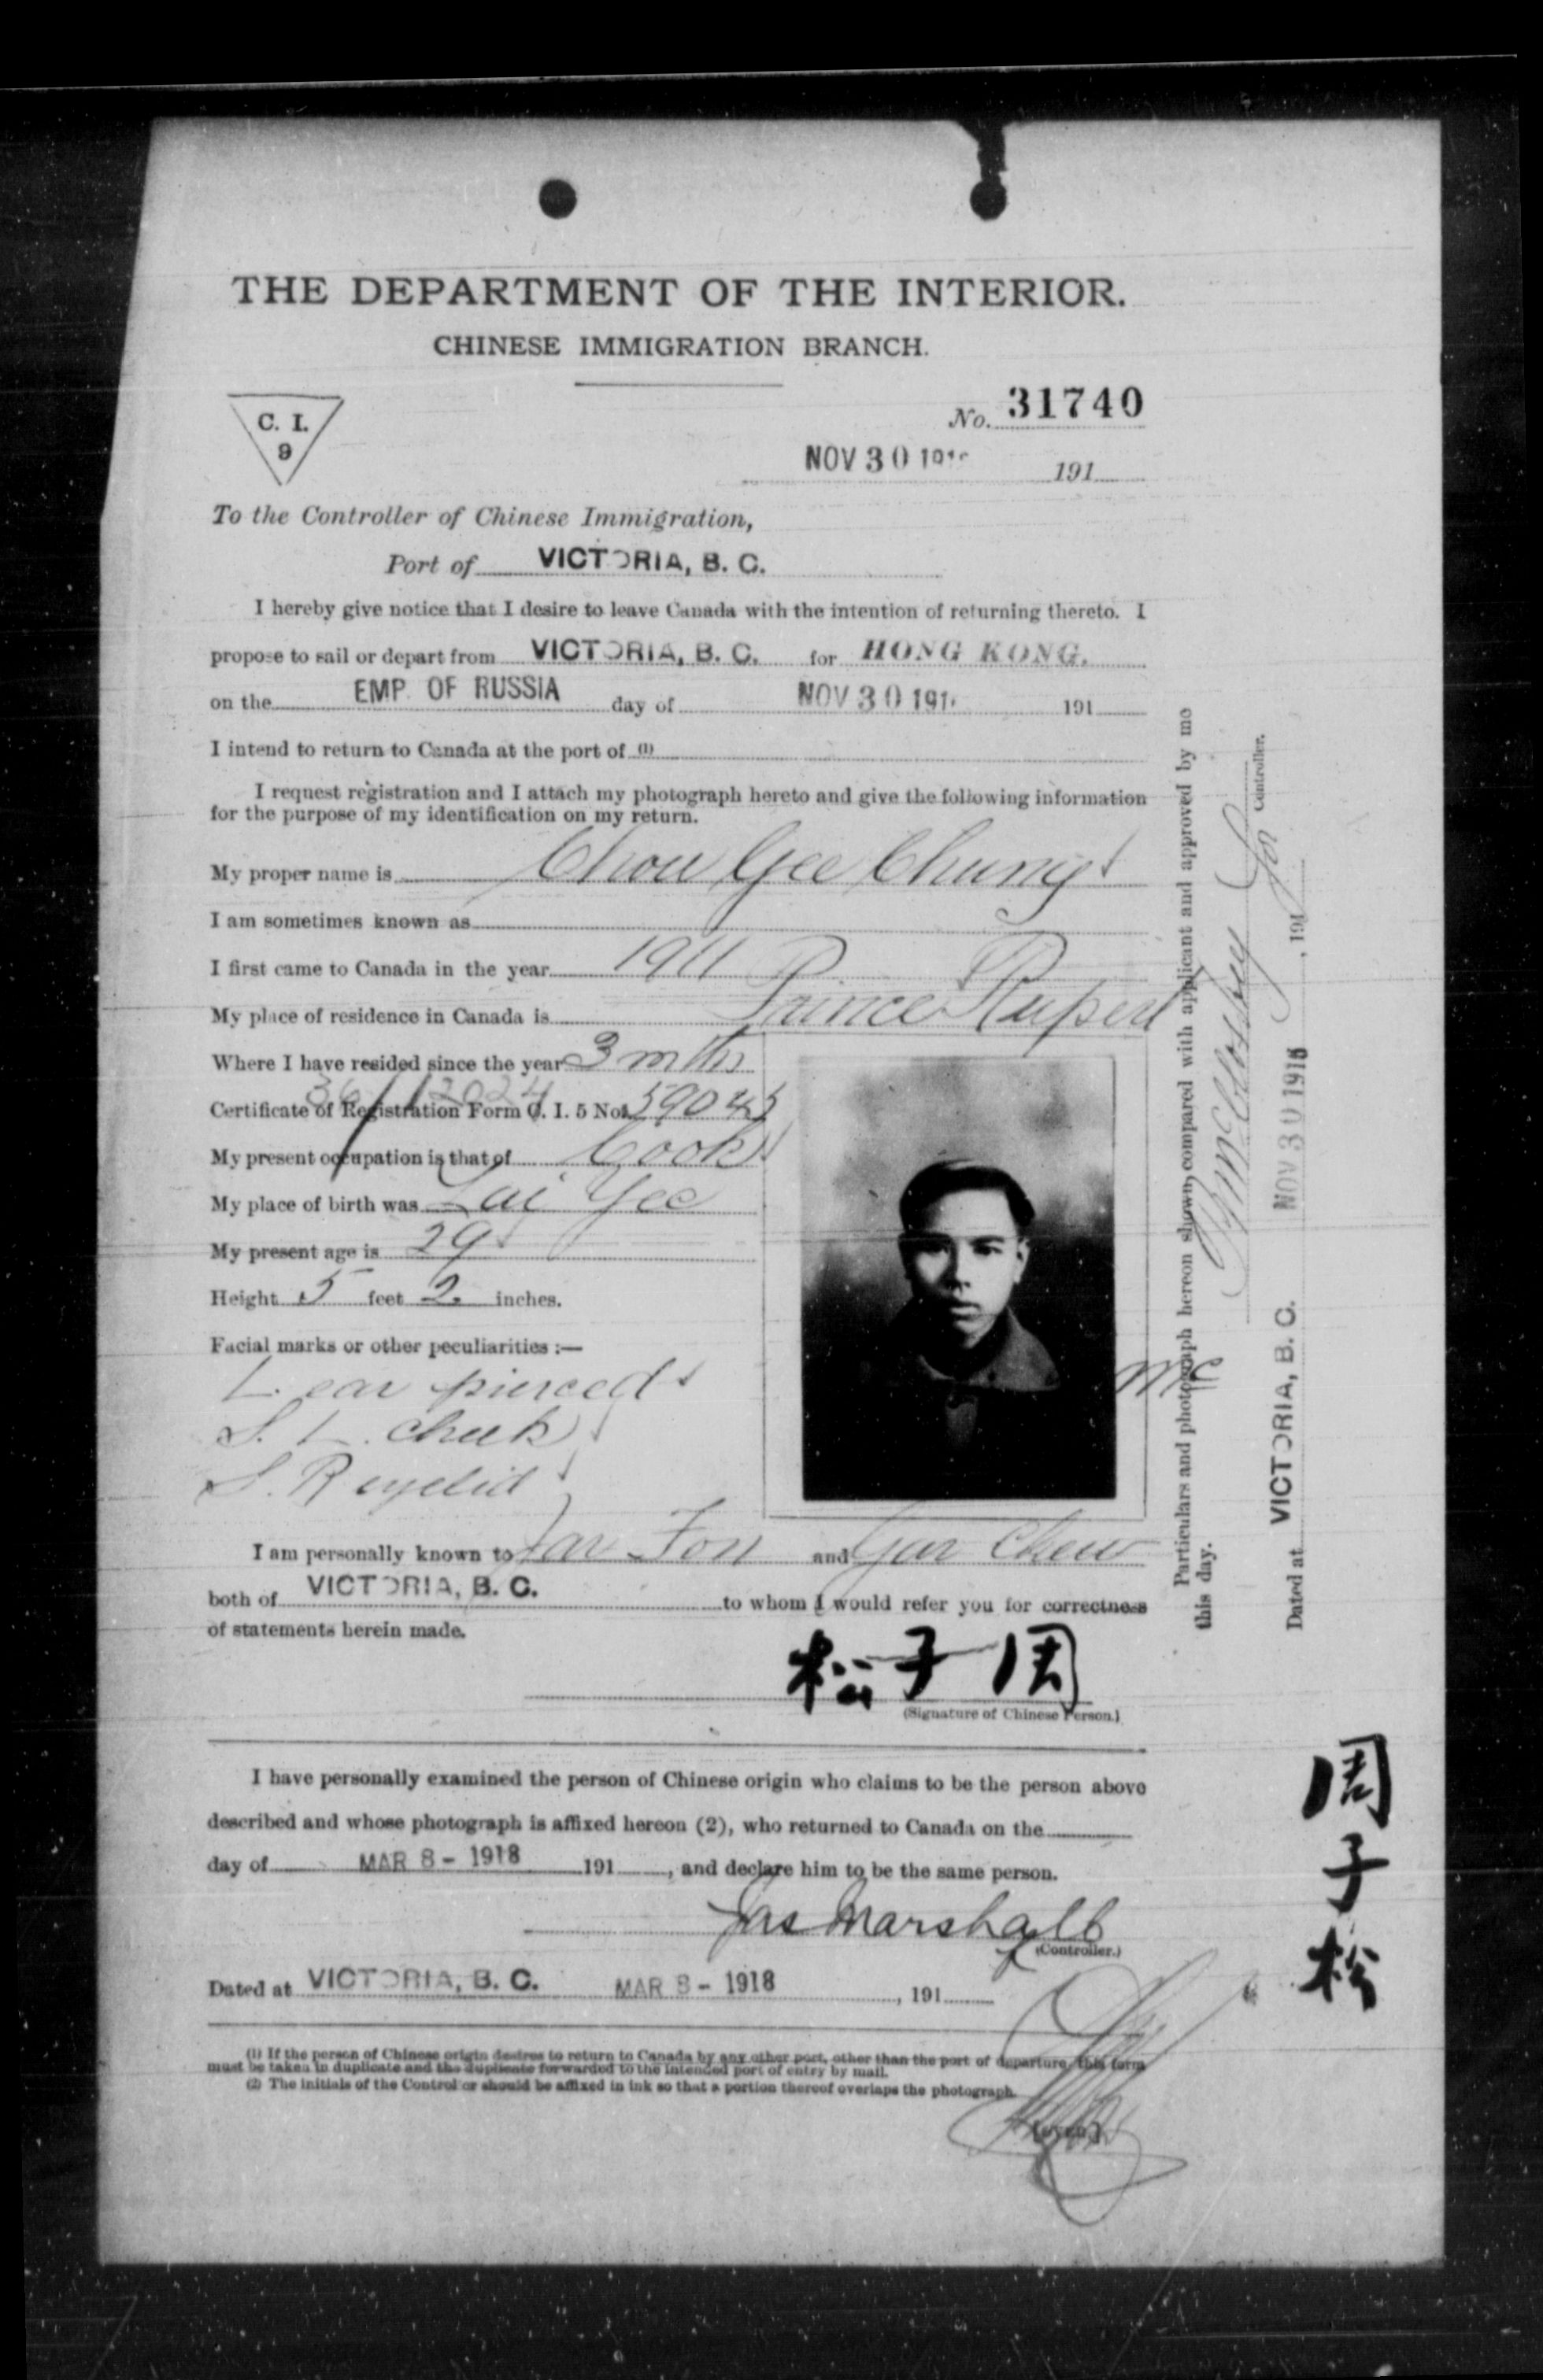 THE DEPARTMENT OF THE INTERIOR.
CHINESE IMMIGRATION BRANCH.
C. I.
9
No. 31740
NOV 30 191 191
To the Controller of Chinese Immigration,
Port of VICTORIA, B. C.
I hereby give notice that I desire to leave Canada with the intention of returning thereto. I
propose to sail or depart from VICTORIA, B. C. for HONG KONG.
on the EMP. OF RUSSIA day of NOV 30 191 191
I intend to return to Canada at the port of (1)
I request registration and I attach my photograph hereto and give the following information
for the purpose of my identification on my return.
My proper name is Chow Gee Chung
I am sometimes known as
I first came to Canada in the year 1911
My place of residence in Canada is Prince Rupert
Where I have resided since the year 3 mths
Certificate of Registration Form C. I. 5 No. 59045
My present occupation is that of Cook
My place of birth was Lai Yee
My present age is 29
Height 5 feet 2 inches.
Facial marks or other peculiarities :—
L. ear pierced
S. L. cheek
S. R eyelid
Mc
I am personally known to Jar Fon and Gar Chew
both of VICTORIA, B. C. to whom I would refer you for correctness
of statements herein made.
松子周
(Signature of Chinese Person.)
I have personally examined the person of Chinese origin who claims to be the person above
described and whose photograph is affixed hereon (2), who returned to Canada on the
day of MAR 8 - 1918 191 , and declare him to be the same person.
Jas Marshall
(Controller.)
Dated at VICTORIA, B. C. MAR 8 - 1918 , 191
(1) If the person of Chinese origin desires to return to Canada by any other port, other than the port of departure, this form
must be taken in duplicate and the duplicate forwarded to the intended port of entry by mail.
(2) The initials of the Controller should be affixed in ink so that a portion thereof overlaps the photograph.
(OVER.)
Particulars and photograph hereon shown, compared with applicant and approved by me
this day.
Controller.
Dated at VICTORIA, B. C. NOV 30 1916 , 191
周子松